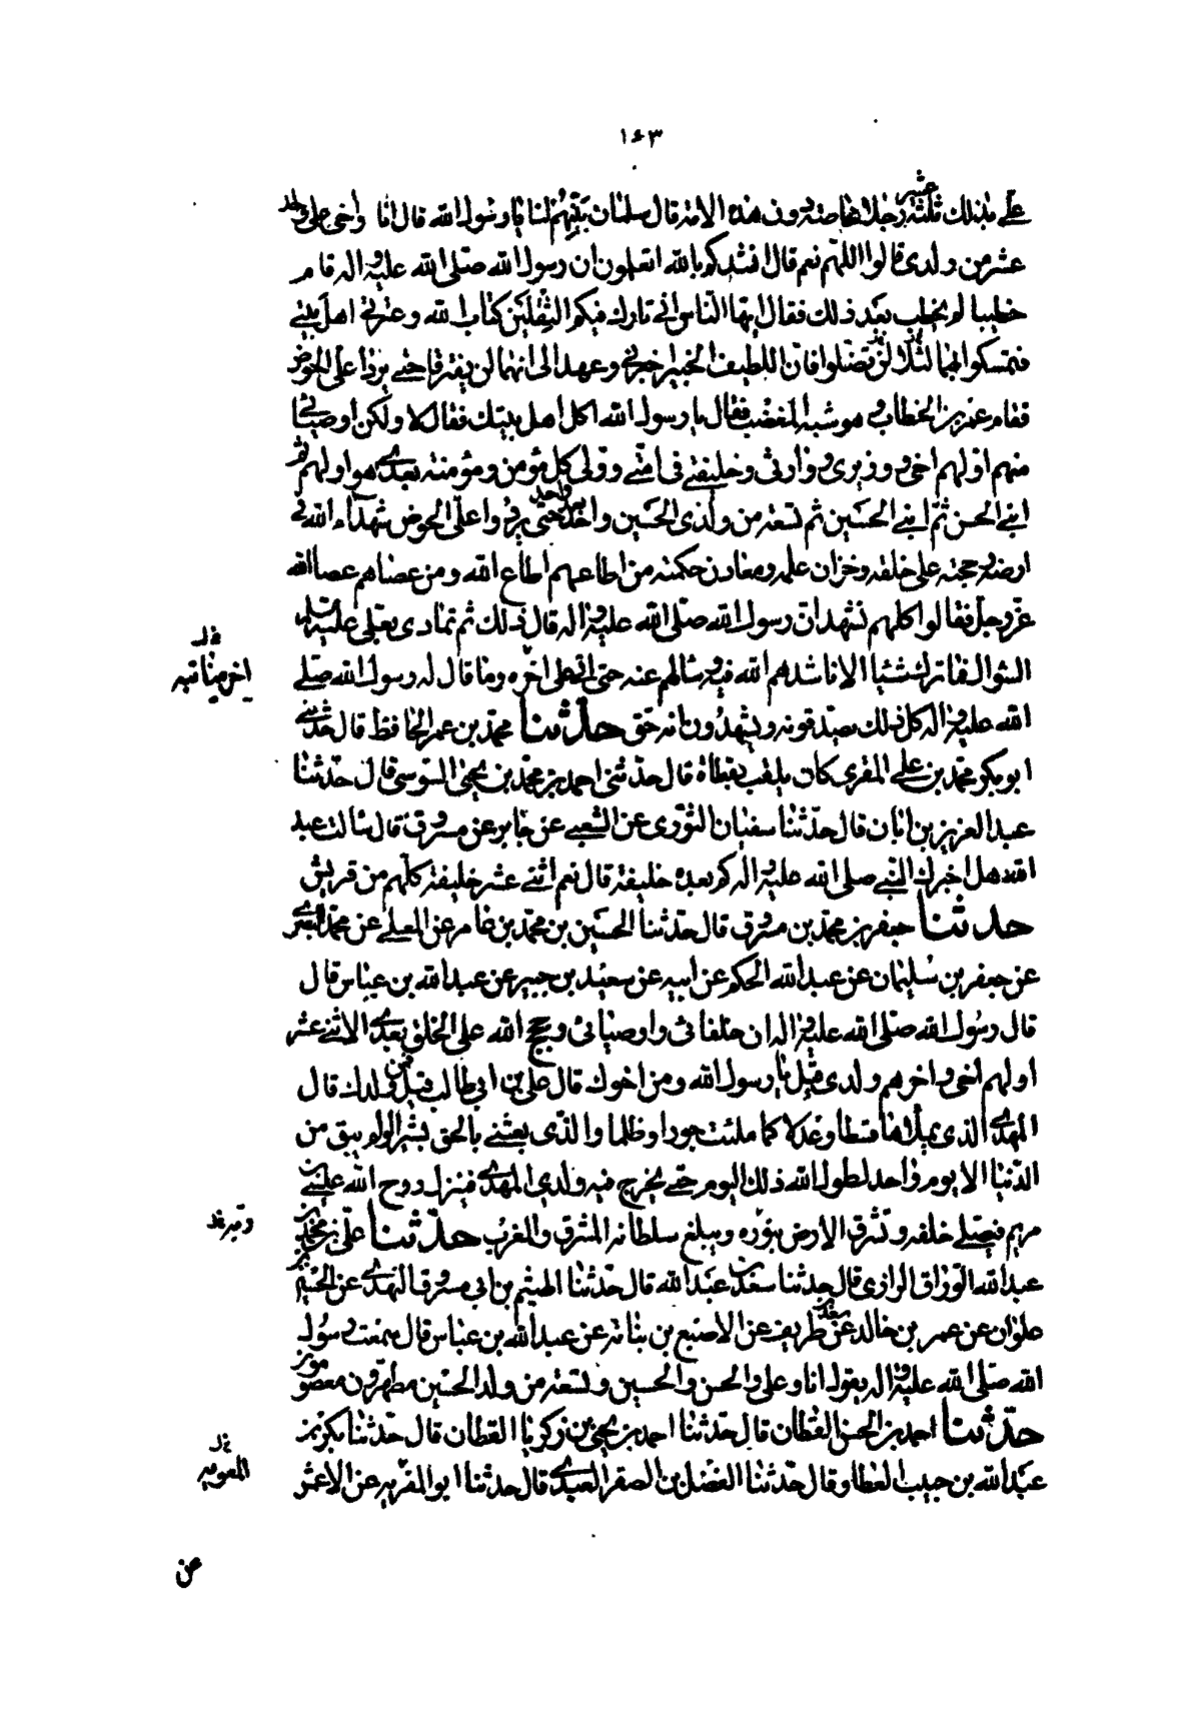 ١٤٣
على بذلك ثلثة عشر رجلا خاصة دون هذه الامة قال سلمان بينهم لنا يا رسول الله قال انا واخي علي واحد
عشر من ولدى قالوا اللهم نعم قال انشدكم بالله اتعلمون ان رسول الله صلى الله عليه واله قام
خطيبا لم يخطب بعد ذلك فقال ايها الناس اني تارك فيكم الثقلين كتاب الله وعترتي اهل بيتي
فتمسكوا بهما لئلا تضلوا فان اللطيف الخبير اخبرني وعهد الى انهما لن يفترقا حتى يردا على الحوض
فقام عمر بن الخطاب وهو شبه المغضب فقال يا رسول الله اكل اهل بيتك فقال لا ولكن اوصيائي
منهم اولهم اخي ووزيري ووارثي وخليفتي في امتي وولي كل مؤمن ومؤمنة بعدي هو اولهم ثم
ابني الحسن ثم ابني الحسين ثم تسعة من ولد الحسين واحد بعد واحد حتى يردوا على الحوض شهداء الله في
ارضه وحجته على خلقه وخزان علمه ومعادن حكمته من اطاعهم اطاع الله ومن عصاهم عصا الله
عز وجل فقالوا كلهم نشهد ان رسول الله صلى الله عليه واله قال ذلك ثم تمادى بعلي عليه السلم
السؤال فما ترك شيئا الا ناشدهم الله فيه وسالهم عنه حتى اتى على اخره وما قال له رسول الله صلى
اخر مناقبه
الله عليه واله كل ذلك يصدقونه ويشهدون انه حق حدثنا محمد بن عمر الحافظ قال حدثني
ابو بكر محمد بن علي المقري كان يلقب بقطاة قال حدثني احمد بن محمد بن يحيى السوسي قال حدثنا
عبد العزيز بن ابان قال حدثنا سفيان الثوري عن الشعبي عن جابر عن مسروق قال سالت عبد
الله هل اخبرك النبي صلى الله عليه واله كم بعده خليفة قال نعم اثنى عشر خليفة كلهم من قريش
حدثنا جعفر بن محمد بن مسروق قال حدثنا الحسين بن محمد بن عامر عن المعلى عن محمد البصري
عن جعفر بن سليمان عن عبد الله الحكم عن ابيه عن سعيد بن جبير عن عبد الله بن عباس قال
قال رسول الله صلى الله عليه واله ان خلفائي واوصيائي وحجج الله على الخلق بعدي الاثنى عشر
اولهم اخي واخرهم ولدى قيل يا رسول الله ومن اخوك قال علي بن ابي طالب قيل فمن ولدك قال
المهدي الذى يملاها قسطا وعدلا كما ملئت جورا وظلما والذى بعثني بالحق بشيرا لو لم يبق من
الدنيا الا يوم واحد لطول الله ذلك اليوم حتى يخرج فيه ولدي المهدي فينزل روح الله عيسى بن
مريم فيصلي خلفه وتشرق الارض بنوره ويبلغ سلطانه المشرق والمغرب حدثنا علي بن محمد بن
عبد الله الوراق الرازي قال حدثنا سعد بن عبد الله قال حدثنا الهيثم بن ابي مسروق النهدي عن الحسين بن
علوان عن عمر بن خالد عن سعد بن طريف عن الاصبغ بن نباتة عن عبد الله بن عباس قال سمعت رسول
الله صلى الله عليه واله يقول انا وعلي والحسن والحسين وتسعة من ولد الحسين مطهرون معصومون
حدثنا احمد بن الحسن القطان قال حدثنا احمد بن يحيى بن زكريا القطان قال حدثنا بكر بن
عبد الله بن حبيب العطار قال حدثنا الفضل بن الصقر العبدي قال حدثنا ابو المقرية عن الاعمش
عن